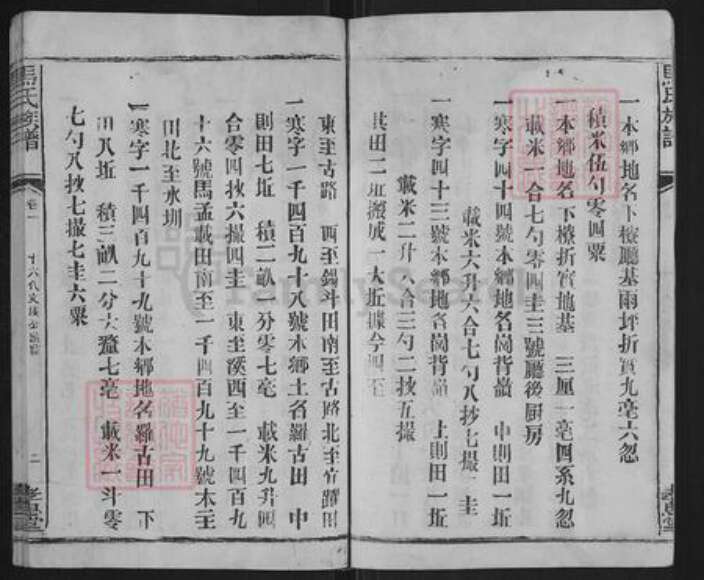 一本鄉地名下橑廳基兩坪折實九毫六忽
積米伍勺零四粟
一本鄉地名下橑折實地基 三厘一毫四系九忽
載米一合七勺零四圭三號廳後厨房
一寒字四十四號本鄉地名崗背嶺 中則田一坵
載米六升六合七勺八抄七撮 圭
一寒字四十三號本鄉地名崗背嶺 上則田一坵
載米二升八合三勺二抄五撮
其田二坵搬成一大坵據今四至
東至古路 西至鍚斗田南至古路北至 田
一寒字一千四百九十八號本鄉土名羅古田 中
則田七坵 積二畝 分零七毫 載米九升四
合零四抄六撮四圭 東至溪西至一千四百九
十六號馬孟載田南至一千四百九十九號本主
田北至水圳
一寒字一千四百九十九號本鄉地名羅古田 下
田八坵 積三畝二分六釐七毫 載米一斗零
七勺八抄七撮七圭六粟
馬氏族譜
卷一
二
孝思堂
馬氏族譜
孝思堂